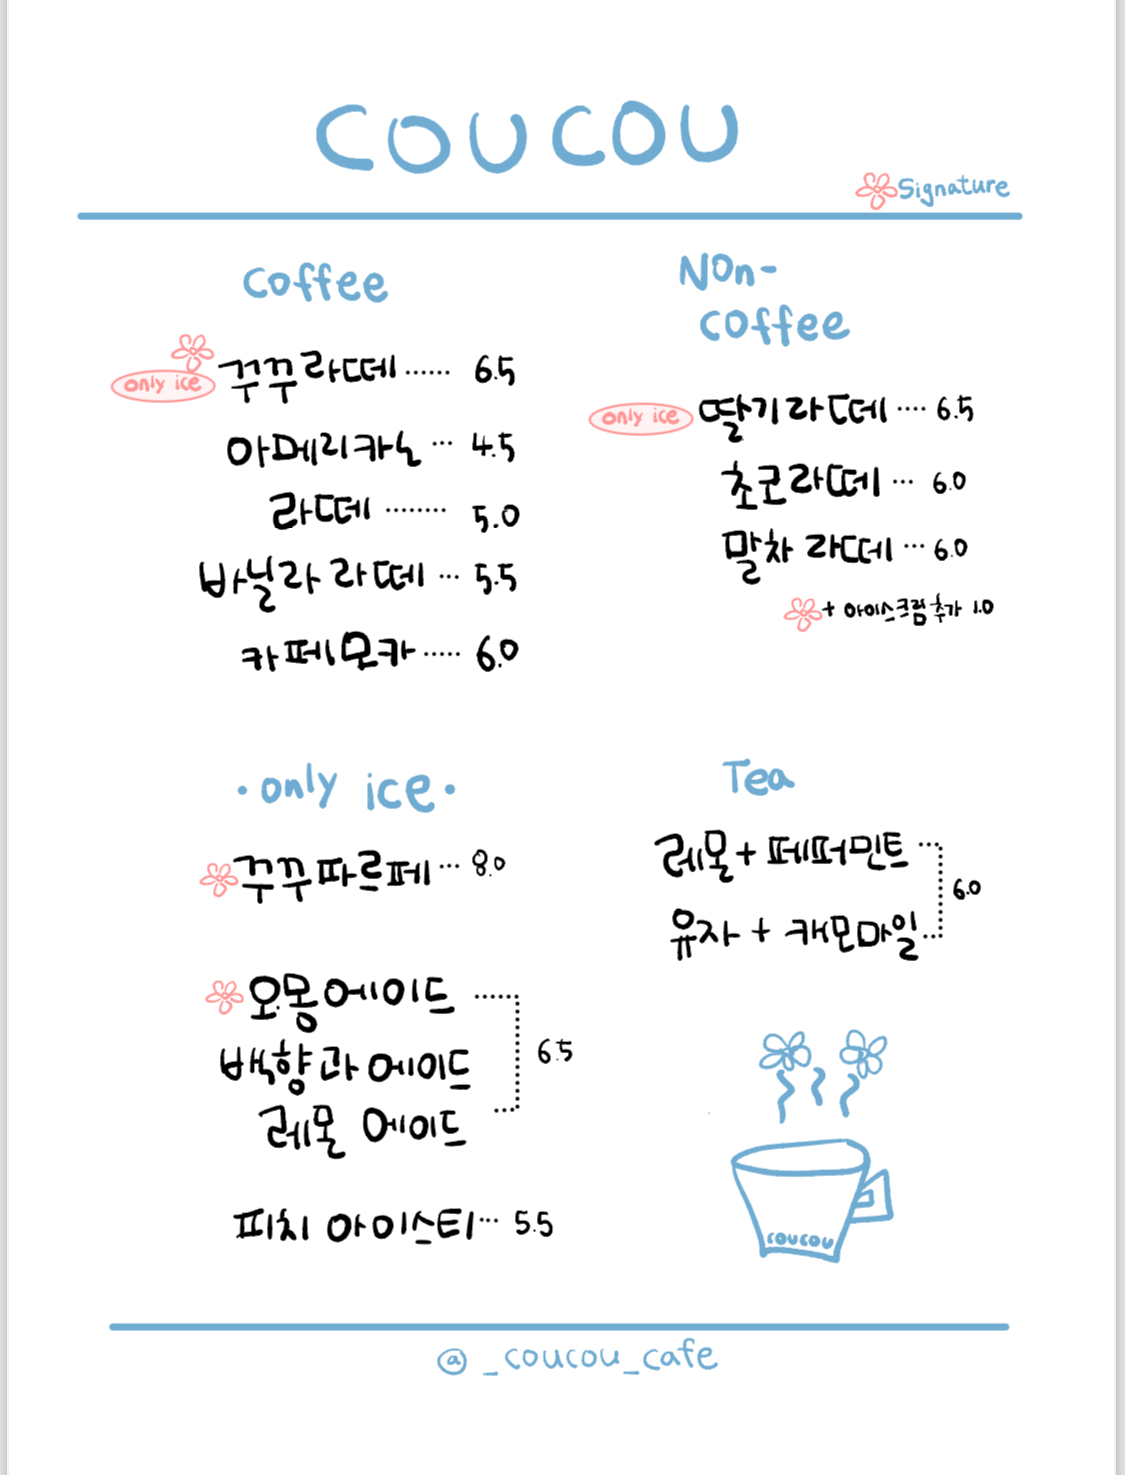 COUCOU
Signature
Coffee
꾸꾸라떼 ...... 6.5
only ice
아메리카노 ... 4.5
라떼 ........ 5.0
바닐라 라떼 ... 5.5
카페모카 ..... 6.0
Non-
coffee
only ice 딸기라떼 .... 6.5
초코라떼 ... 6.0
말차 라떼 ... 6.0
+ 아이스크림 추가 1.0
· only ice ·
꾸꾸파르페 ... 8.0
오몽에이드
백향과에이드
6.5
레몬 에이드
피치 아이스티 ... 5.5
Tea
레몬 + 페퍼민트
6.0
유자 + 캐모마일
coucou
@_coucou_cafe